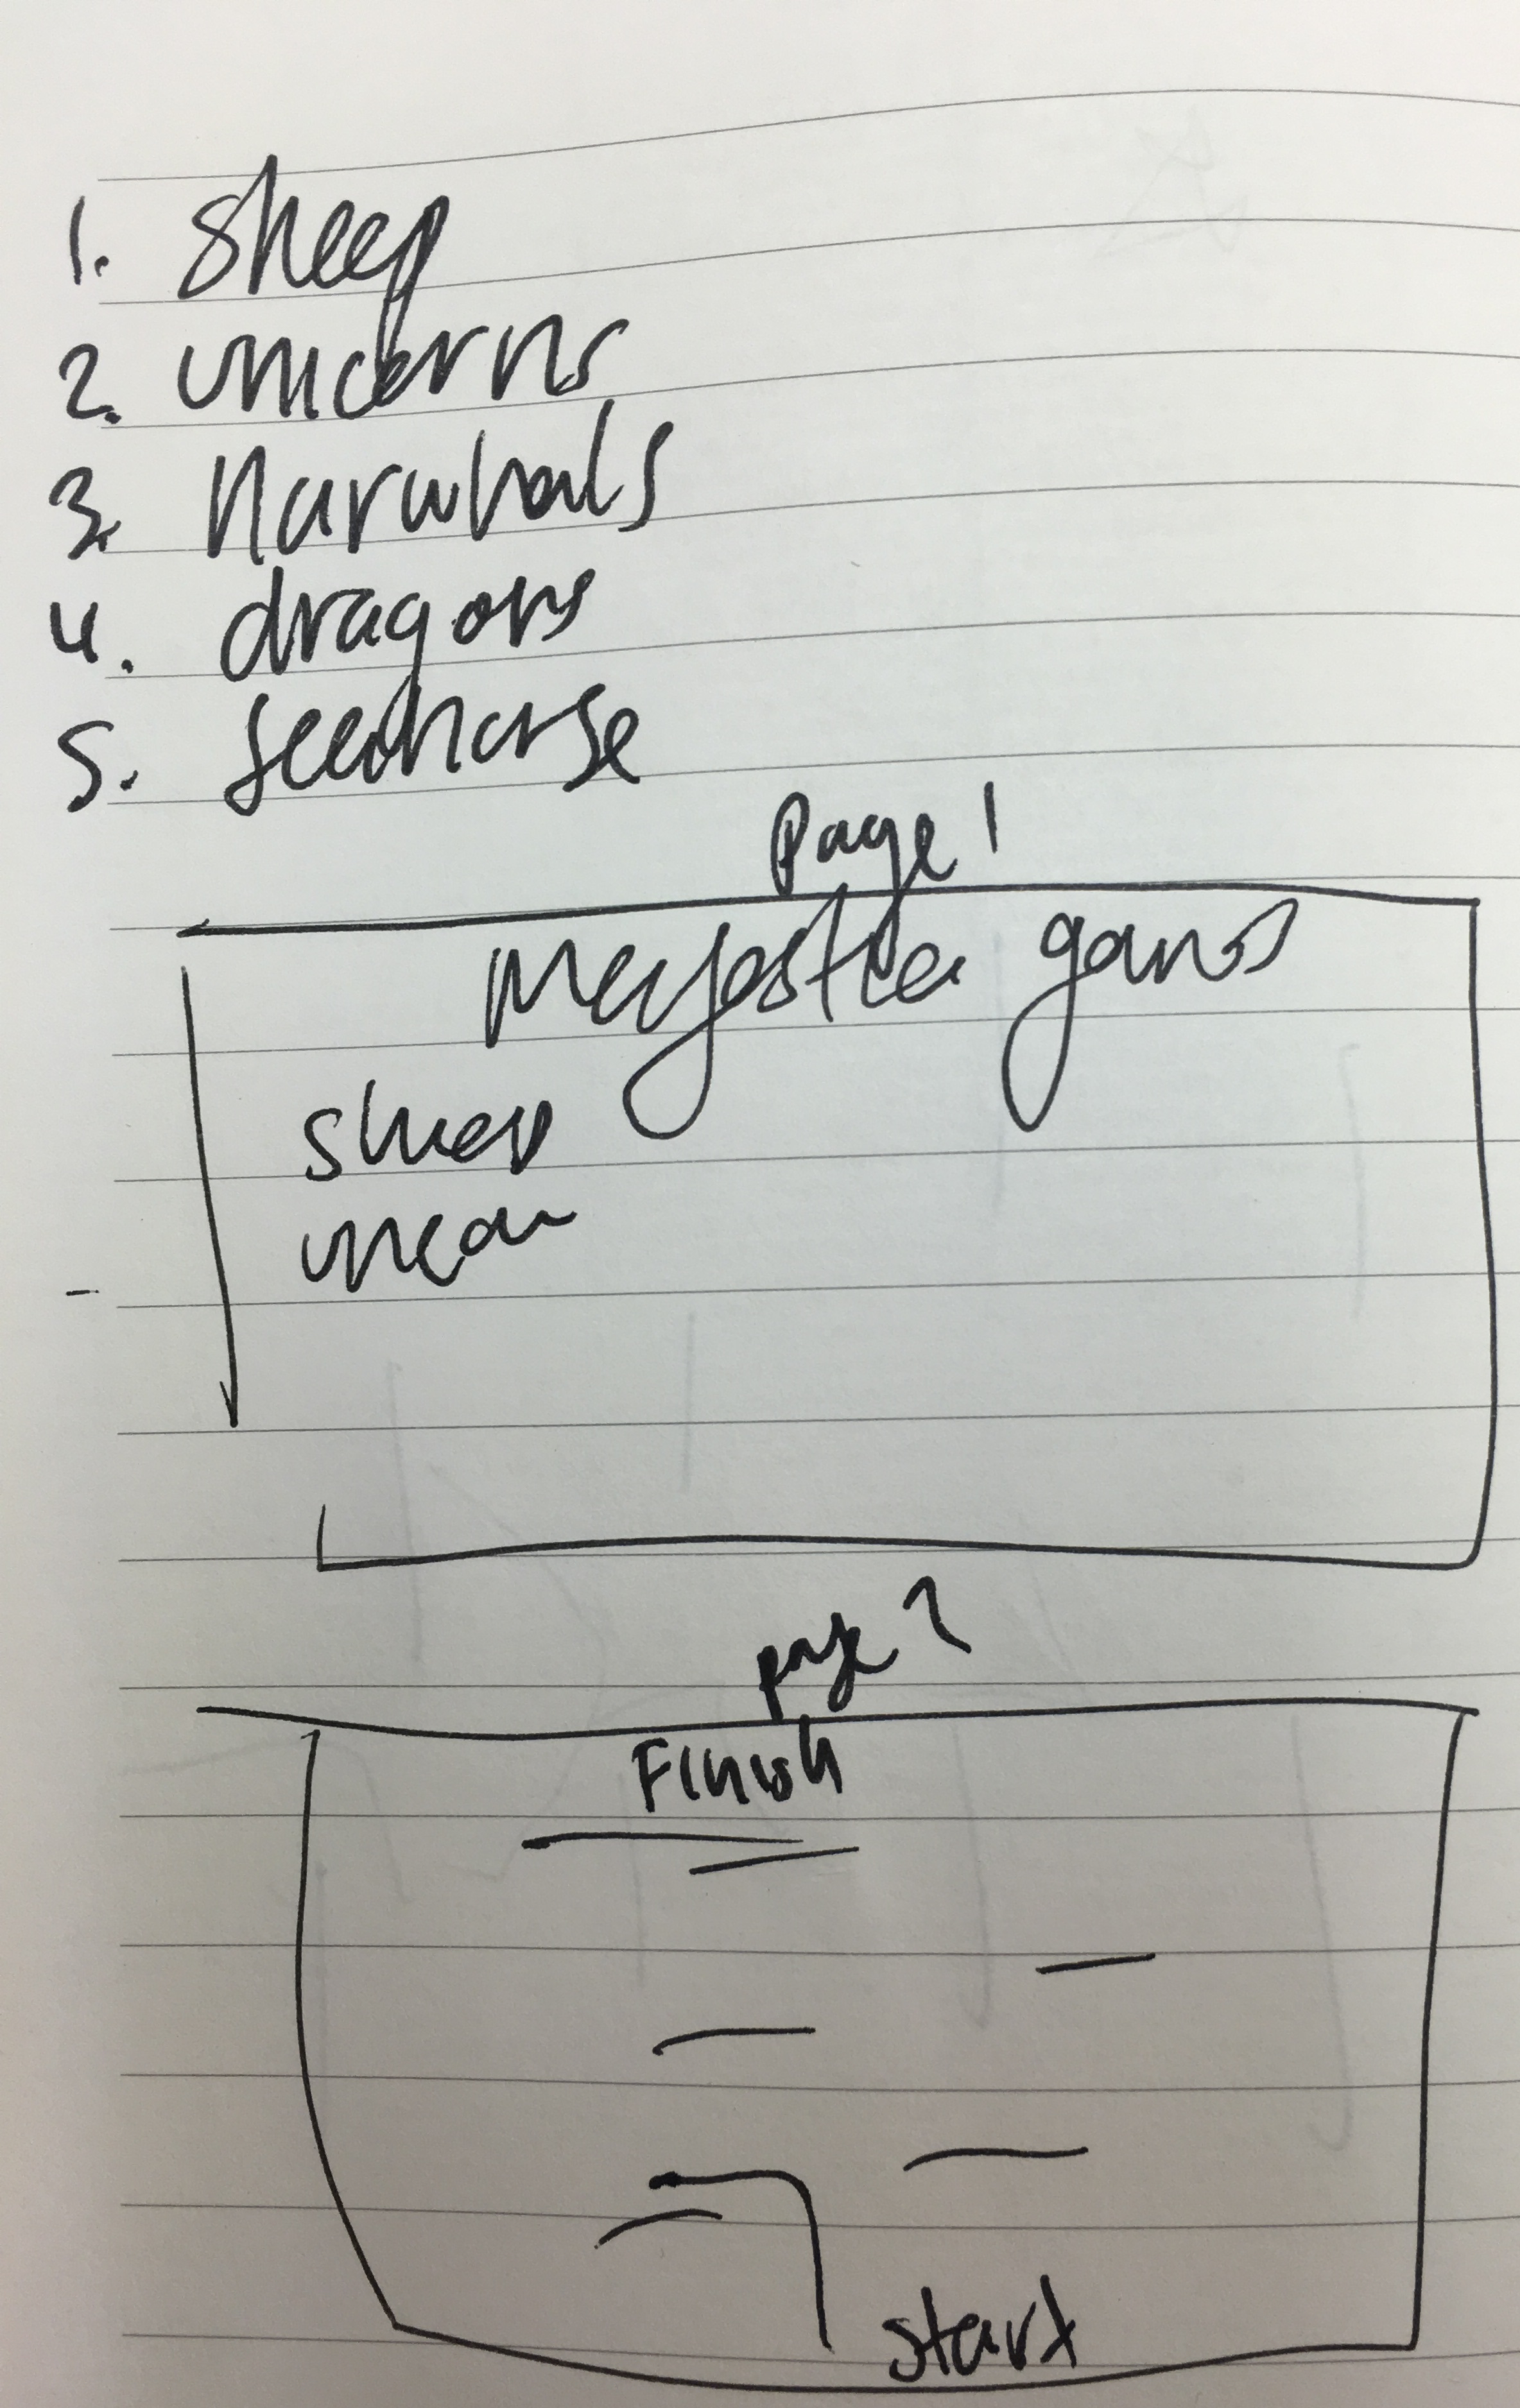 1. sheep
2. unicorns
3. Narwhals
4. dragons
5. seahorse
Page 1
Majestic games
sheep
page 2
Finish
start